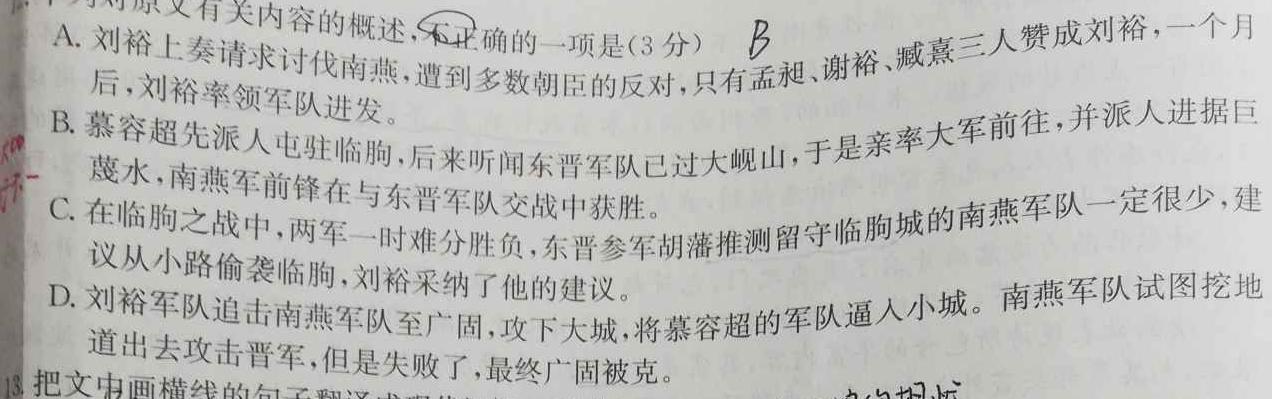 对原文有关内容的概述,不正确的一项是(3分) B
A. 刘裕上奏请求讨伐南燕,遭到多数朝臣的反对,只有孟昶、谢裕、臧熹三人赞成刘裕,一个月
后,刘裕率领军队进发。
B. 慕容超先派人屯驻临朐,后来听闻东晋军队已过大岘山,于是亲率大军前往,并派人进据巨
蔑水,南燕军前锋在与东晋军队交战中获胜。
C. 在临朐之战中,两军一时难分胜负,东晋参军胡藩推测留守临朐城的南燕军队一定很少,建
议从小路偷袭临朐,刘裕采纳了他的建议。
D. 刘裕军队追击南燕军队至广固,攻下大城,将慕容超的军队逼入小城。南燕军队试图挖地
道出去攻击晋军,但是失败了,最终广固被克。
13. 把文中画横线的句子翻译成现代